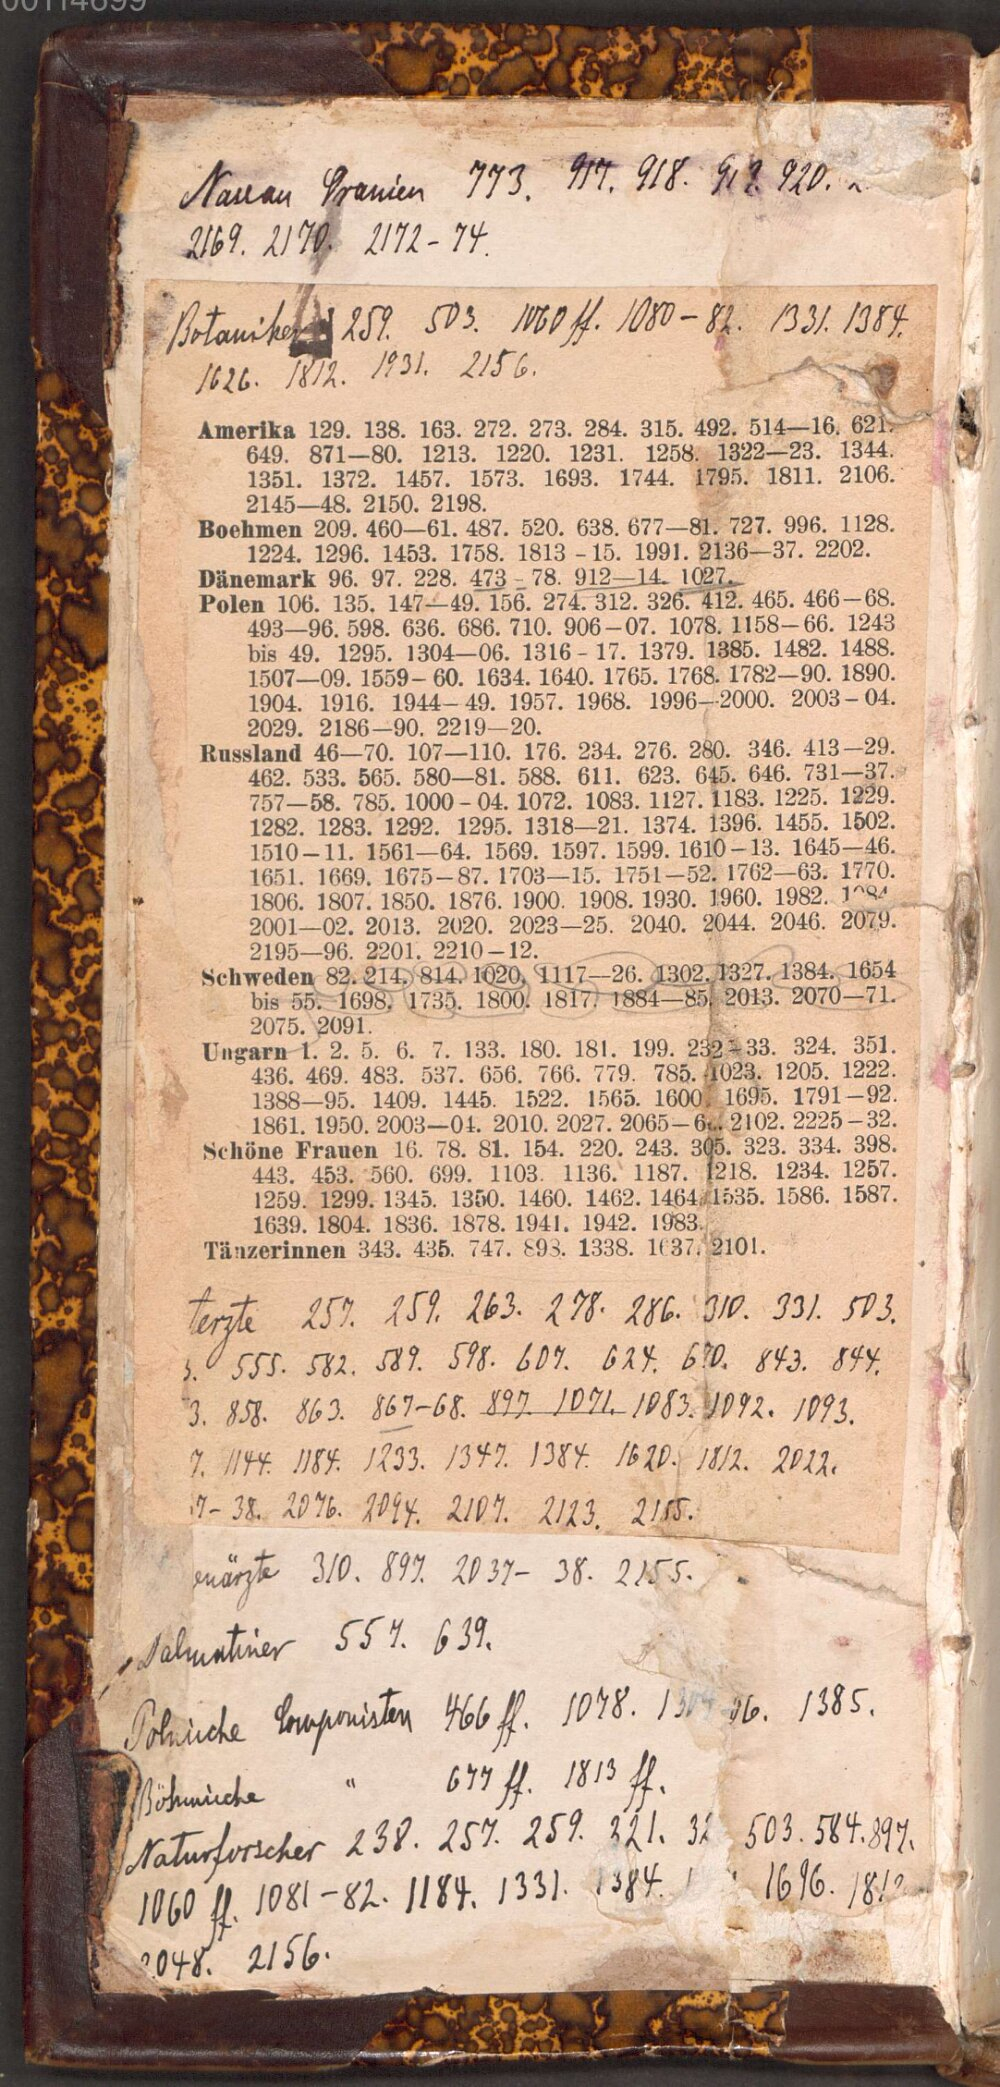 00114699
Nassau Oranien 773. 917. 918. 919. 920.
2169. 2170. 2172-74.
Botaniker 259. 503. 1060 ff. 1080-82. 1331. 1384.
1626. 1812. 1931. 2156.
Amerika 129. 138. 163. 272. 273. 284. 315. 492. 514—16. 621.
649. 871—80. 1213. 1220. 1231. 1258. 1322—23. 1344.
1351. 1372. 1457. 1573. 1693. 1744. 1795. 1811. 2106.
2145—48. 2150. 2198.
Boehmen 209. 460—61. 487. 520. 638. 677—81. 727. 996. 1128.
1224. 1296. 1453. 1758. 1813-15. 1991. 2136—37. 2202.
Dänemark 96. 97. 228. 473-78. 912—14. 1027.
Polen 106. 135. 147—49. 156. 274. 312. 326. 412. 465. 466-68.
493—96. 598. 636. 686. 710. 906-07. 1078. 1158-66. 1243
bis 49. 1295. 1304—06. 1316-17. 1379. 1385. 1482. 1488.
1507—09. 1559-60. 1634. 1640. 1765. 1768. 1782—90. 1890.
1904. 1916. 1944-49. 1957. 1968. 1996-2000. 2003-04.
2029. 2186-90. 2219-20.
Russland 46—70. 107—110. 176. 234. 276. 280. 346. 413-29.
462. 533. 565. 580—81. 588. 611. 623. 645. 646. 731—37.
757—58. 785. 1000-04. 1072. 1083. 1127. 1183. 1225. 1229.
1282. 1283. 1292. 1295. 1318—21. 1374. 1396. 1455. 1502.
1510-11. 1561—64. 1569. 1597. 1599. 1610-13. 1645—46.
1651. 1669. 1675-87. 1703—15. 1751-52. 1762—63. 1770.
1806. 1807. 1850. 1876. 1900. 1908. 1930. 1960. 1982. 1984
2001—02. 2013. 2020. 2023—25. 2040. 2044. 2046. 2079.
2195—96. 2201. 2210-12.
Schweden 82. 214. 814. 1020. 1117—26. 1302. 1327. 1384. 1654
bis 55. 1698. 1735. 1800. 1817. 1884—85. 2013. 2070—71.
2075. 2091.
Ungarn 1. 2. 5. 6. 7. 133. 180. 181. 199. 232-33. 324. 351.
436. 469. 483. 537. 656. 766. 779. 785. 1023. 1205. 1222.
1388—95. 1409. 1445. 1522. 1565. 1600. 1695. 1791-92.
1861. 1950. 2003—04. 2010. 2027. 2065- 2102. 2225-32.
Schöne Frauen 16. 78. 81. 154. 220. 243. 305. 323. 334. 398.
443. 453. 560. 699. 1103. 1136. 1187. 1218. 1234. 1257.
1259. 1299. 1345. 1350. 1460. 1462. 1464. 1535. 1586. 1587.
1639. 1804. 1836. 1878. 1941. 1942. 1983.
Tänzerinnen 343. 435. 747. 893. 1338. 1637. 2101.
terzte 257. 259. 263. 278. 286. 310. 331. 503.
3. 555. 582. 589. 598. 607. 624. 670. 843. 844.
3. 858. 863. 867-68. 897. 1071. 1083. 1092. 1093.
7. 1144. 1184. 1233. 1347. 1384. 1620. 1812. 2022.
7-38. 2076. 2094. 2107. 2123. 2155.
enärzte 310. 897. 2037-38. 2155.
Dalmatiner 557. 639.
Polnische Componisten 466 ff. 1078. 1304 06. 1385.
Böhmische " 677 ff. 1813 ff.
Naturforscher 238. 257. 259. 321. 503. 584. 897.
1060 ff. 1081-82. 1184. 1331. 1384. 1696. 1812
2048. 2156.